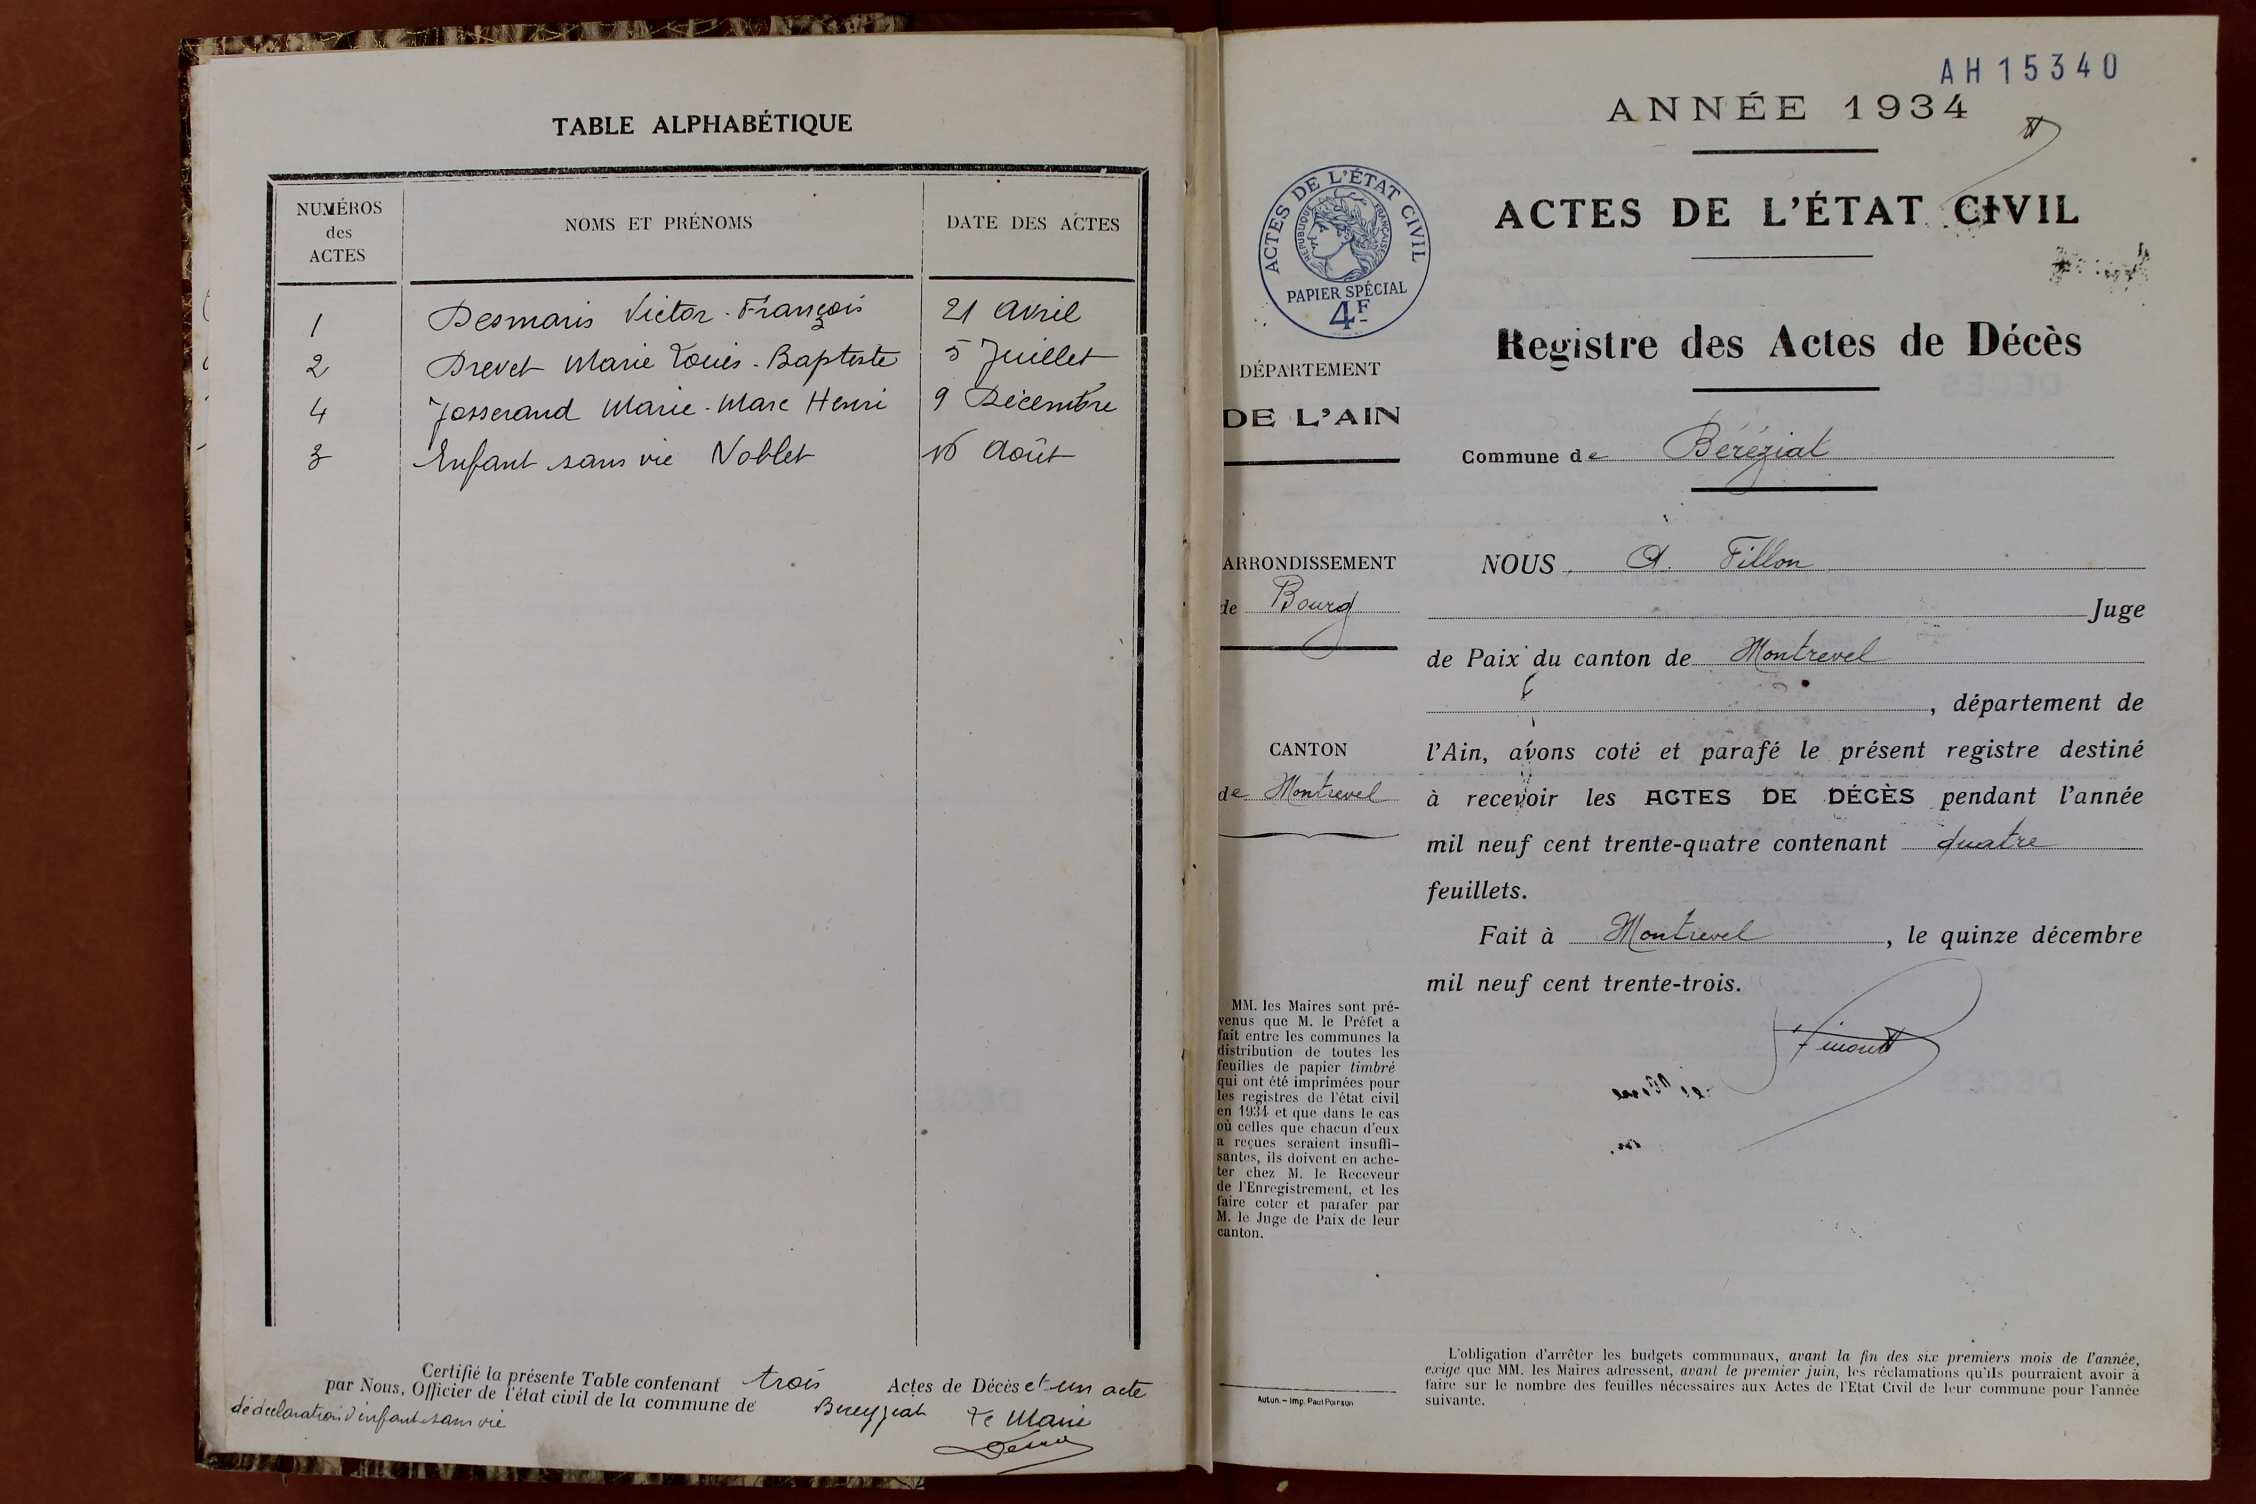 TABLE ALPHABÉTIQUE
NUMÉROS
des
ACTES
NOMS ET PRÉNOMS
DATE DES ACTES
1 Desmaris Victor-François 21 Avril
2 Drevet Marie Louis-Baptiste 5 Juillet
4 Josserand Marie-Marc Henri 9 Décembre
3 Enfant sans vie Noblet 16 Août
Certifié la présente Table contenant trois Actes de Décès et un acte
par Nous, Officier de l'état civil de la commune de Bereyziat Le Maire
de déclaration d'enfant sans vie
AH 15340
ANNÉE 1934
ACTES DE L'ÉTAT CIVIL
ACTES DE L'ÉTAT CIVIL
RÉPUBLIQUE FRANÇAISE
PAPIER SPÉCIAL
4F
Registre des Actes de Décès
DÉPARTEMENT
DE L'AIN
Commune de Béréziat
ARRONDISSEMENT
de Bourg
CANTON
de Montrevel
NOUS, A. Fillon
Juge
de Paix du canton de Montrevel
, département de
l'Ain, avons coté et parafé le présent registre destiné
à recevoir les ACTES DE DÉCÈS pendant l'année
mil neuf cent trente-quatre contenant quatre
feuillets.
Fait à Montrevel, le quinze décembre
mil neuf cent trente-trois.
MM. les Maires sont pré-
venus que M. le Préfet a
fait entre les communes la
distribution de toutes les
feuilles de papier timbré
qui ont été imprimées pour
les registres de l'état civil
en 1934 et que dans le cas
où celles que chacun d'eux
a reçues seraient insuffi-
santes, ils doivent en ache-
ter chez M. le Receveur
de l'Enregistrement, et les
faire coter et parafer par
M. le Juge de Paix de leur
canton.
Autun. – Imp. Paul Poirson
L'obligation d'arrêter les budgets communaux, avant la fin des six premiers mois de l'année,
exige que MM. les Maires adressent, avant le premier juin, les réclamations qu'ils pourraient avoir à
faire sur le nombre des feuilles nécessaires aux Actes de l'Etat Civil de leur commune pour l'année
suivante.